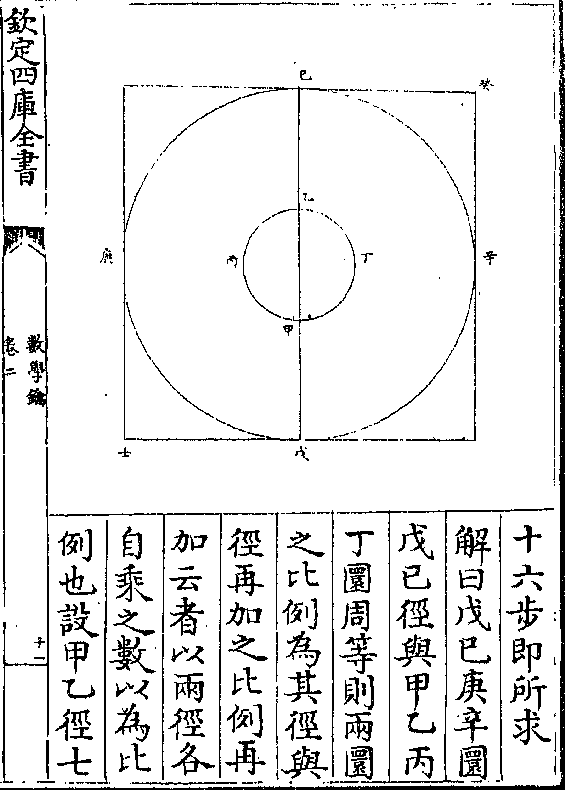 欽定四庫全書
數學鑰
卷二
十一
巳
癸
乙
庚
丙
丁
辛
甲
壬
戊
十六步即所求
解曰戊巳庚辛圜
戊巳徑與甲乙丙
丁圜周等則兩圜
之比例為其徑與
徑再加之比例再
加云者以兩徑各
自乘之數以為比
例也設甲乙徑七